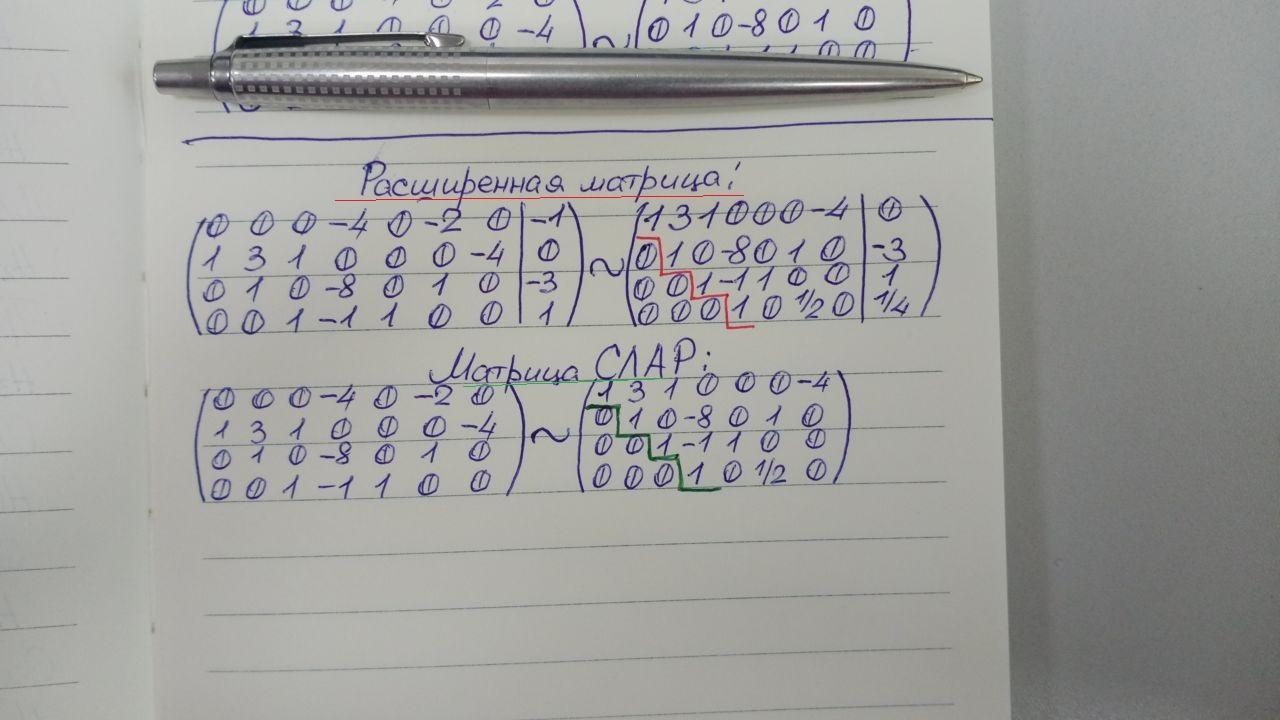 1 3 1 0 0 0 -4 ~ 0 1 0 -8 0 1 0
Расширенная матрица:
0 0 0 -4 0 -2 0 | -1 1 3 1 0 0 0 -4 | 0
1 3 1 0 0 0 -4 | 0 ~ 0 1 0 -8 0 1 0 | -3
0 1 0 -8 0 1 0 | -3 0 0 1 -1 1 0 0 | 1
0 0 1 -1 1 0 0 | 1 0 0 0 1 0 1/2 0 | 1/4
Матрица СЛАР:
0 0 0 -4 0 -2 0 1 3 1 0 0 0 -4
1 3 1 0 0 0 -4 ~ 0 1 0 -8 0 1 0
0 1 0 -8 0 1 0 0 0 1 -1 1 0 0
0 0 1 -1 1 0 0 0 0 0 1 0 1/2 0